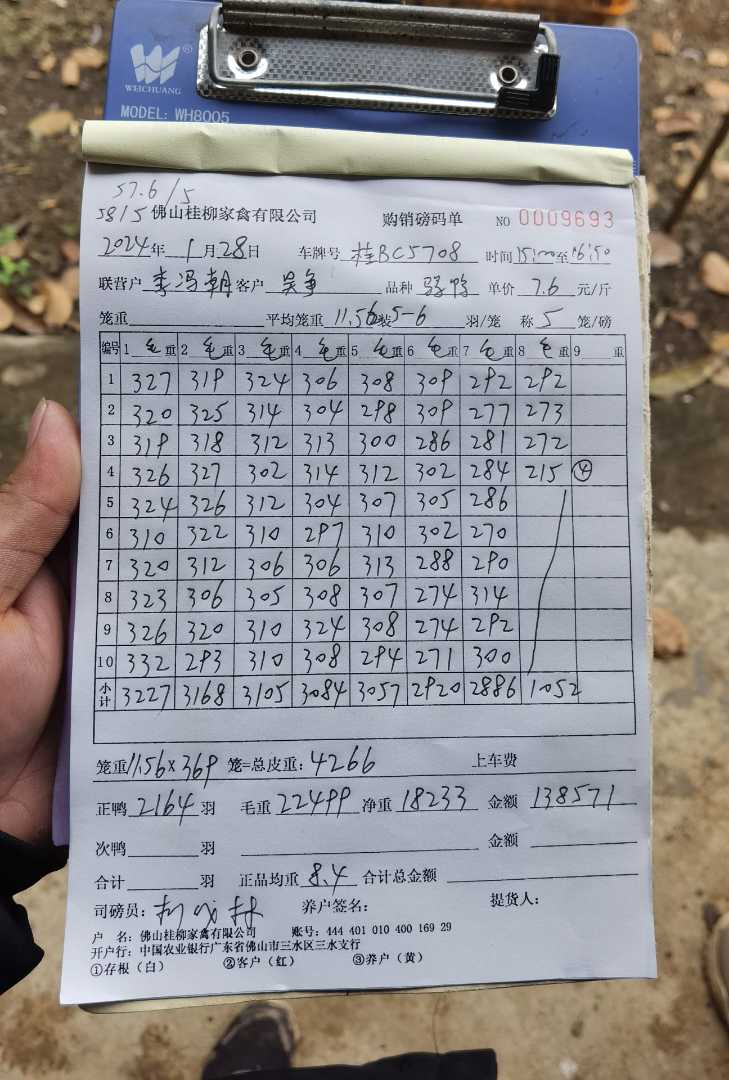 WEICHUANG
MODEL: WH8005
57.6/5
58/5 佛山桂柳家禽有限公司 购销磅码单 NO 0009693
2024年 1月28日 车牌号 桂BC5708 时间15:00至16:50
联营户 李冯朝 客户 吴争 品种 骡鸭 单价 7.6 元/斤
笼重 平均笼重 11.56 装5-6 羽/笼 称 5 笼/磅
编号 1 毛重 2 毛重 3 毛重 4 毛重 5 毛重 6 毛重 7 毛重 8 毛重 9 重
1 327 319 324 306 308 309 292 292
2 320 325 314 304 298 309 277 273
3 319 318 312 313 300 286 281 272
4 326 327 302 314 312 302 284 215 ④
5 324 326 312 304 307 305 286
6 310 322 310 297 310 302 270
7 320 312 306 306 313 288 290
8 323 306 305 308 307 274 314
9 326 320 310 324 308 274 292
10 332 293 310 308 294 271 300
小计 3227 3168 3105 3084 3057 2920 2886 1052
笼重11.56×369 笼=总皮重: 4266 上车费
正鸭 2164 羽 毛重 22499 净重 18233 金额 138571
次鸭 羽 金额
合计 羽 正品均重 8.4 合计总金额
司磅员: 养户签名: 提货人:
户 名: 佛山桂柳家禽有限公司 账号: 444 401 010 400 169 29
开户行: 中国农业银行广东省佛山市三水区三水支行
①存根（白） ②客户（红） ③养户（黄）